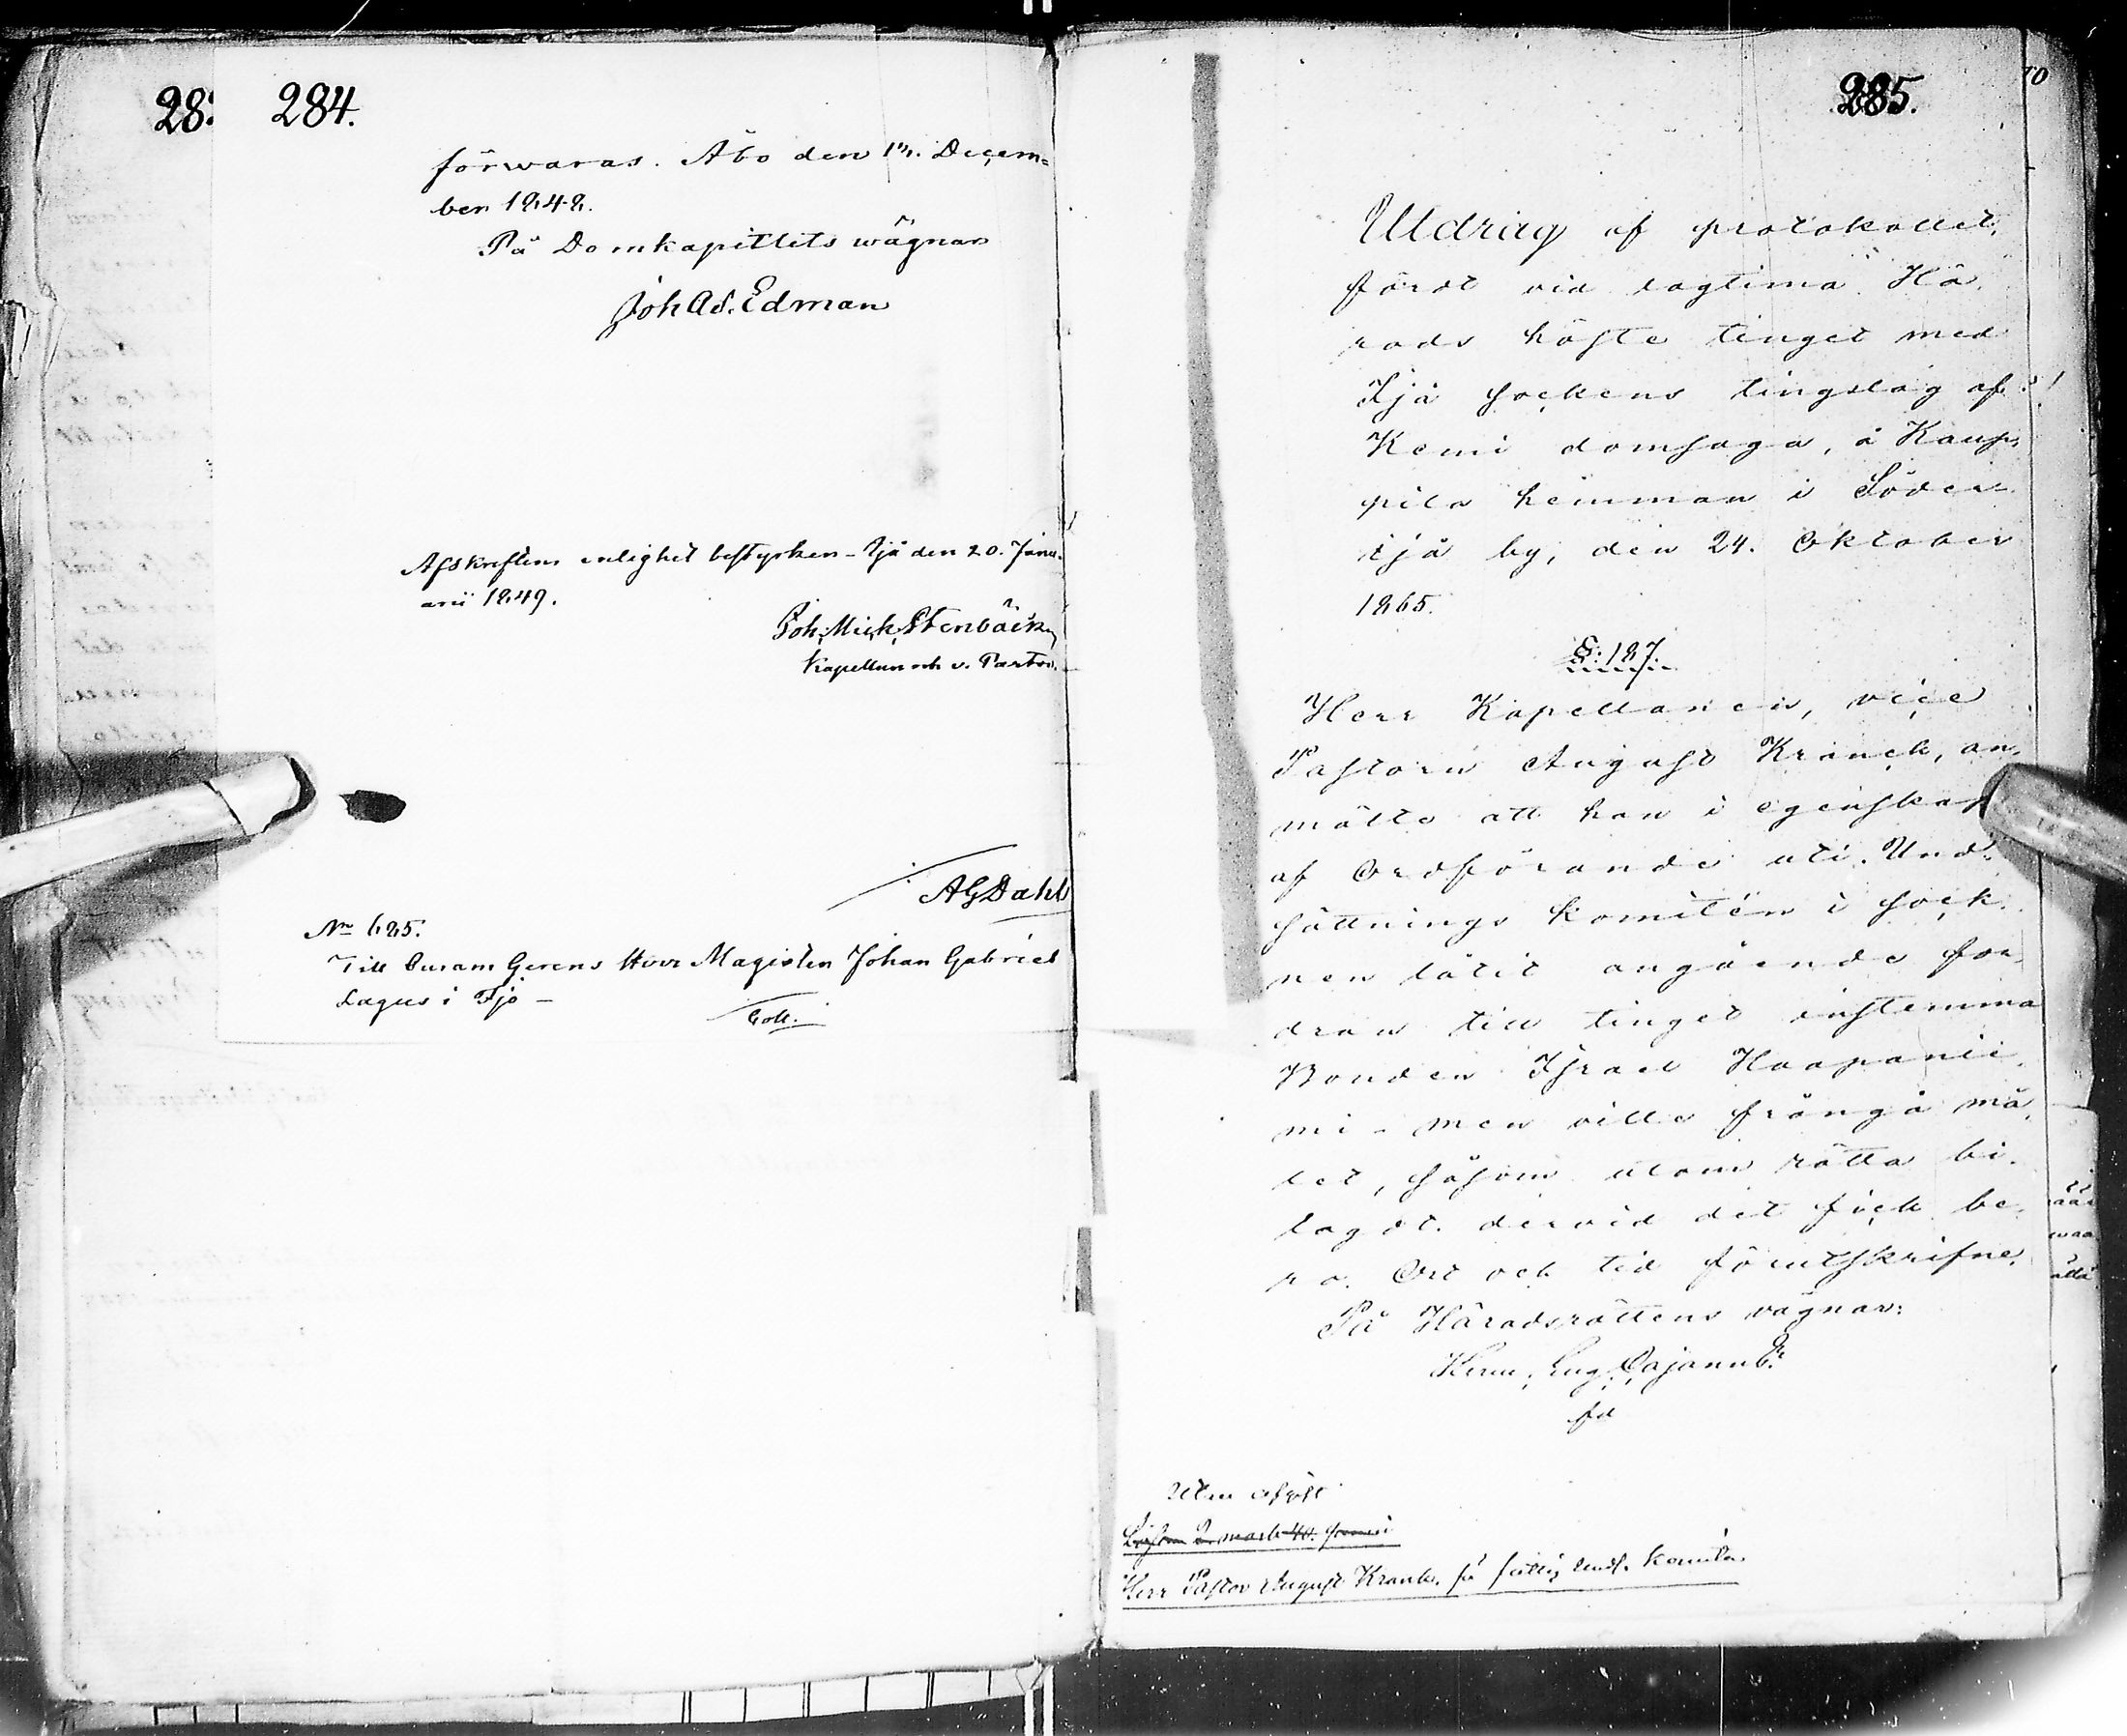 284.
förwaras. Åbo den 1n. Decem=
ber 1848.
På Domkapitlets wägnar
Joh Ad. Edman
Afskriftens enlighet bestyrker - Ijå den 20. Janu-
arii 1849.
Joh. Mich. Stenbäck,
Kapellan och v. Pastor.
AGDahl
No 685.
Till Curam Gerens Herr Magister Johan Gabriel
Lagus i Ijå -
Coll.
285.
Utdrag af protokollet,
fördt vid lagtima Hä-
rads höste tinget med
Ijå sockens tingslag af
Kemi domsaga, å Kaup-
pila hemman i Söder
Ijå by, den 24. Oktober
1865.
§: 187.
Herr Kapellanen, vice
Pastorn August Kranck, an-
mälte att han i egenskap
af Ordförande uti Und-
sättnings komitén i sock-
nen låtit angående for-
dran till tinget instemma
Bonden Israel Haapanie-
mi - men ville frångå må-
let, såsom utom rätta bi-
lagdt. dervid det fick be-
ro. Ort och tid förutskrifne.
På Häradsrättens vägnar:
Herm. Eug. Cajanus.
Utan afgift
Lösen 2 mark 40. penni
Herr Pastor August Kranck, för fattig Unds. Komitén